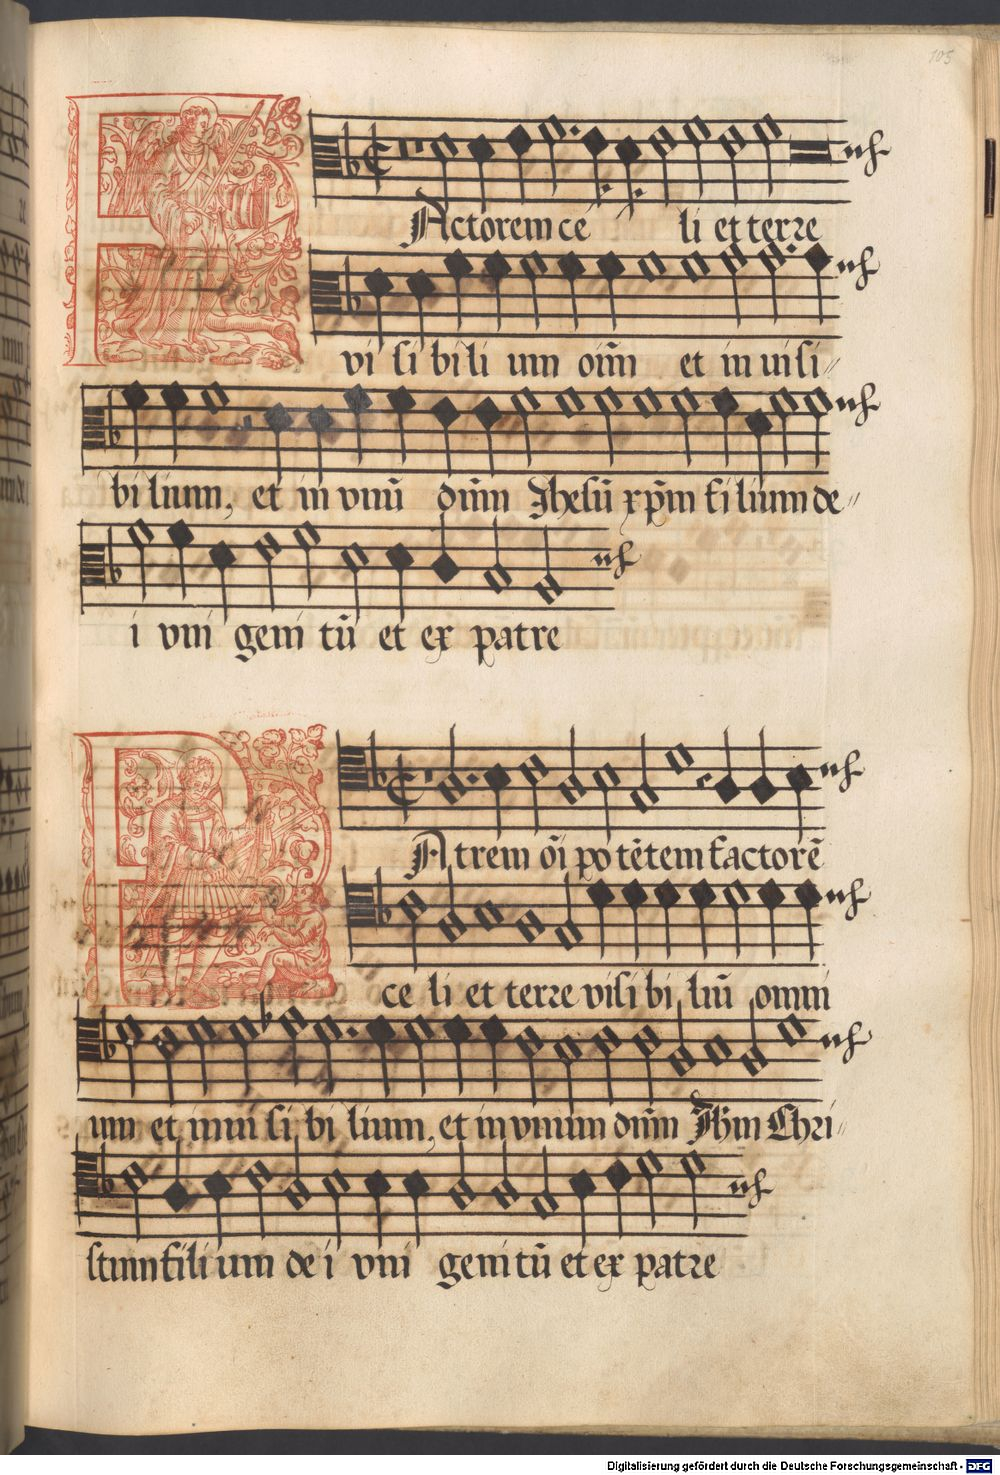 105
FActorem ce li et terre
vi si bi li um oim̄ et in ui si
bi lium, et in vnū dn̄m Jhesū xp̄m fi lium de
i vni geni tū et ex patre
PAtrem oī po tētem factorē
ce li et terre visi bi liū omni
um et inui si bi lium, et in vnum dn̄m Jhm̄ Chri
stum fili um de i vni geni tū et ex patre
Digitalisierung gefördert durch die Deutsche Forschungsgemeinschaft - DFG